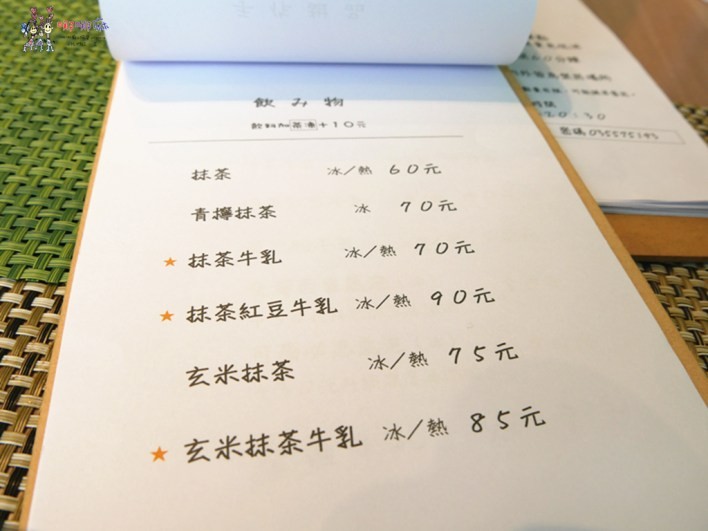 飲み物
飲料加茶凍+10元
抹茶 冰/熱 60元
青檸抹茶 冰 70元
★ 抹茶牛乳 冰/熱 70元
★ 抹茶紅豆牛乳 冰/熱 90元
玄米抹茶 冰/熱 75元
★ 玄米抹茶牛乳 冰/熱 85元
60分鐘
時間
20:30